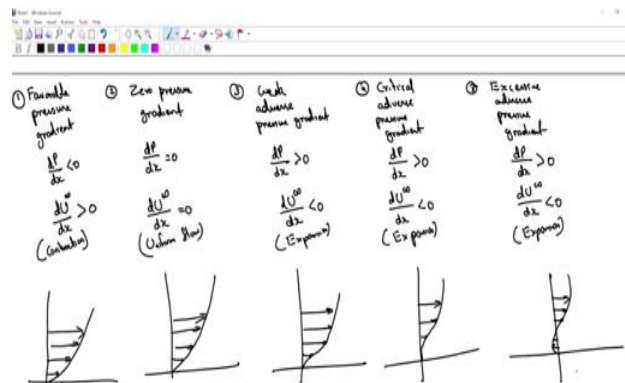 ① Favorable
pressure
gradient
dP/dx < 0
dU∞/dx > 0
(Contraction)
② Zero pressure
gradient
dP/dx = 0
dU∞/dx = 0
(Uniform flow)
③ Weak
adverse
pressure gradient
dP/dx > 0
dU∞/dx < 0
(Expansion)
④ Critical
adverse
pressure
gradient
dP/dx > 0
dU∞/dx < 0
(Expansion)
Excessive
adverse
pressure
gradient
dP/dx > 0
dU∞/dx < 0
(Expansion)